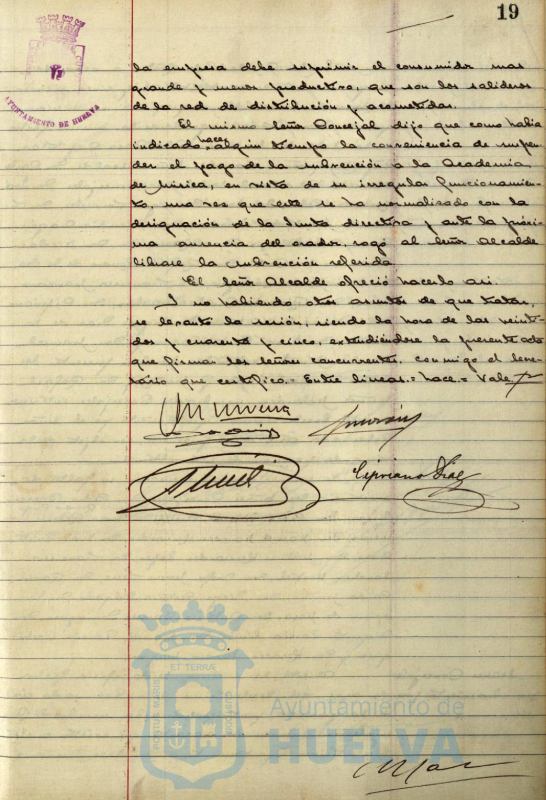 19
AYUNTAMIENTO DE HUELVA
la empresa debe suprimir el consumidor mas
grande y menos productivo, que son los salideros
de la red de distribución y acometidas.
El mismo Señor Concejal dijo que como había
indicado hace algún tiempo la conveniencia de suspen-
der el pago de la subvención a la Academia
de Música, en vista de su irregular funcionamien-
to, una vez que este se ha normalizado con la
designación de la Junta directiva y ante la próxi-
ma ausencia del orador, rogó al Señor Alcalde
librase la subvención referida
El Señor Alcalde ofreció hacerlo así.
Y no habiendo otros asuntos de que tratar,
se levantó la sesión, siendo la hora de las veinti-
dos y cuarenta y cinco, extendiéndose la presente acta
que firman los señores concurrentes conmigo el Secre-
tario que certifico.= Entre lineas.= hace.= Vale.
Cipriano Díaz
ET TERRÆ
PORTUS MARIS
CUSTODIA
Ayuntamiento de
HUELVA